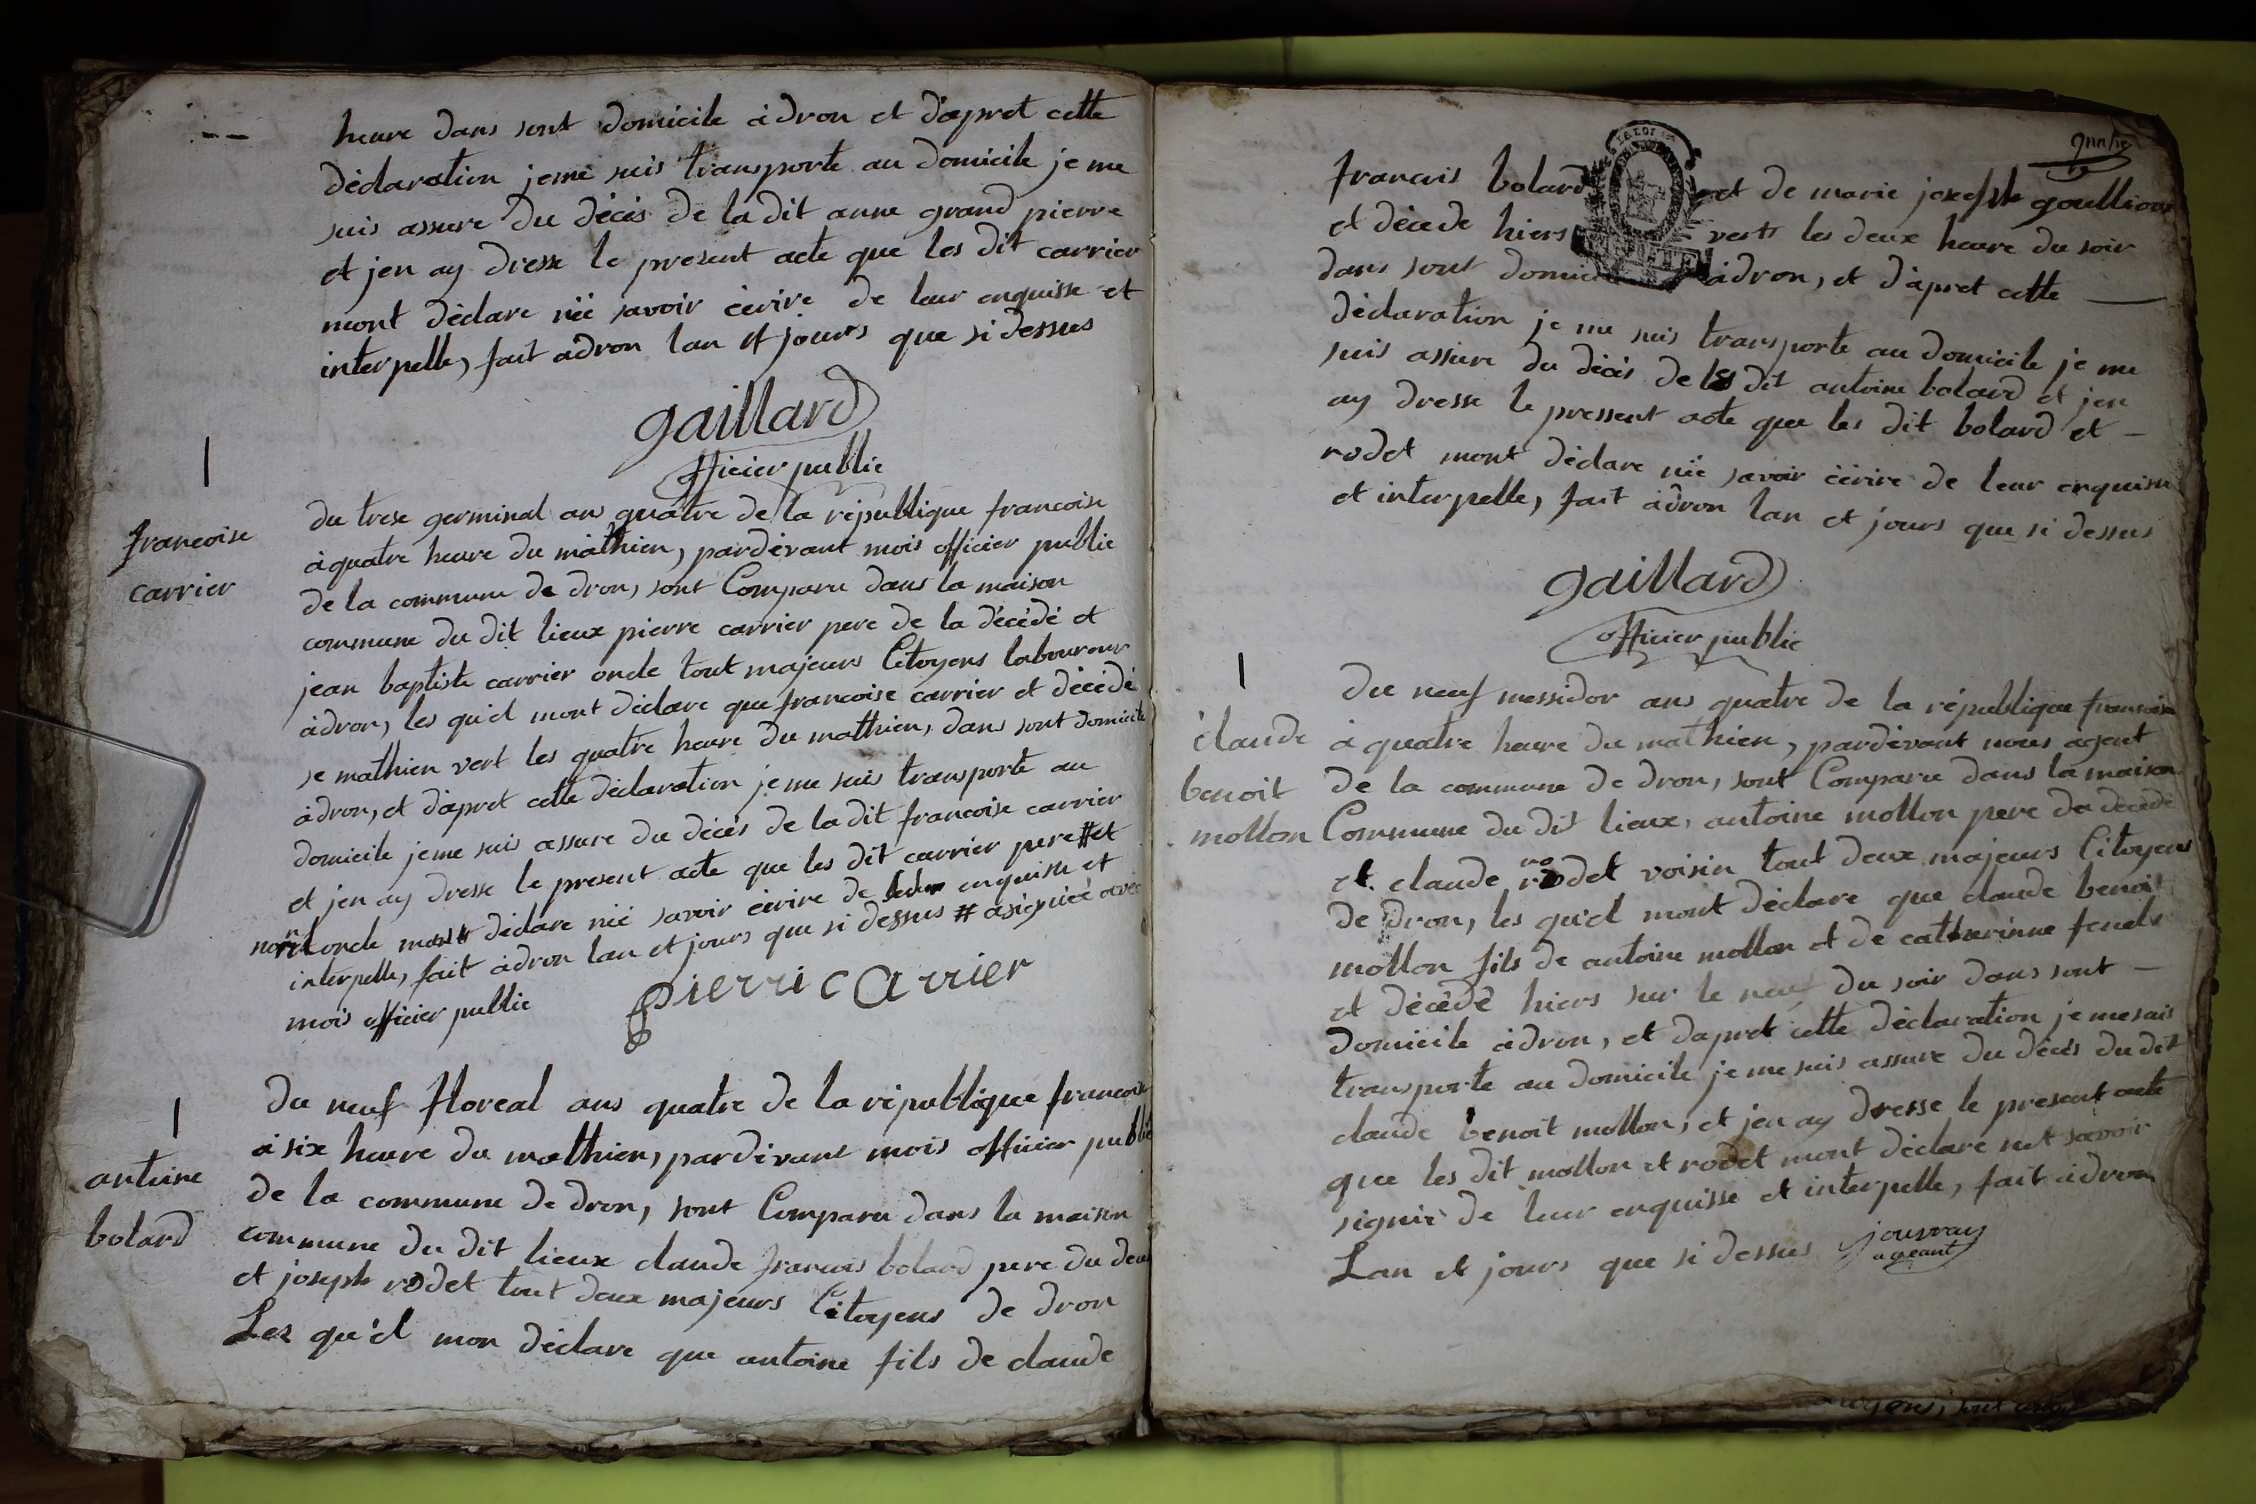 heure dans sont domicile à dron et dàpret cette
dèclaration jeme suis transporte au domicile je me
suis assure du dècès de la dit anne grand pierre
et jen ay dresse le present acte que les dit carrier
mont dèclare nïe savoir ècrire de leur enquisse et
interpelle, fait adron lan et jours que si dessus
gaillard
officier public
francoise
carrier
du trese germinal ans quatre de la rèpublique francoise
à quatre heure du mathien, pardèvant mois officier public
de la commune de dron, sont Comparu dans la maison
commune du dit lieux pierre carrier pere de la dècèdè et
jean baptiste carrier oncle tout majeurs Citoyens laboureur
àdron, les qu'el mont dèclare que francoise carrier et dècèdè
se mathien vert les quatre heure du mathien, dans sont domicile
àdron, et dàpret cette dèclaration je me suis transporte au
domicile jeme suis assure du dècès de la dit francoise carrier
et jen ay dresse le present acte que les dit carrier pere # et
oncle dèclare niè savoir ècrire de enquisse et
interpelle, fait àdron lan et jours que si dessus # a signèè avec
mois officier public
pierri carrier
antoine
bolard
du neuf floreal ans quatre de la rèpublique francoise
à six heure du mathien, pardèvant mois officier public
de la commune de dron, sont Comparu dans la maison
commune du dit lieux claude francois bolard pere du
et joseph rodet tout deux majeurs Citoyens de dron
Les qu'el mon dèclare que antoine fils de claude
francois bolard et de marie joseph goullion
et dècede hiers verts les deux heure du soir
dans sont àdron, et dàpret cette
dèclaration je me suis transporte au domicile je me
suis assure du dècès de dit antoine bolard et jen
ay dresse le pressent acte que les dit bolard et
rodet mont dèclare nïe savoir ècrire de leur enquisse
et interpelle, fait àdron lan et jours que si dessus
gaillard
officier public
claude
benoit
mollon
du neuf messidor ans quatre de la rèpublique francoise
à quatre heure du mathien, pardèvant nous agent
de la commune de dron, sont Comparu dans la maison
Commune du dit lieux, antoine mollon pere du dècèdè
et claude rodet voisin tout deux majeurs Citoyens
de dron, les qu'el mont dèclare que claude benoit
mollon fils de antoine mollon et de catherinne
et dècèdè hiers sur le neuf du soir dans sont
domicile àdron, et dapret cette dèclaration je mesuis
transporte au domicile je mesuis assure du dècès du dit
claude benoit mollon, et jen ay dresse le present acte
que les dit mollon et rodet mont dèclare savoir
signiè de leur enquisse et interpelle, fait àdron
Lan et jours que si dessus jouvray
ageant